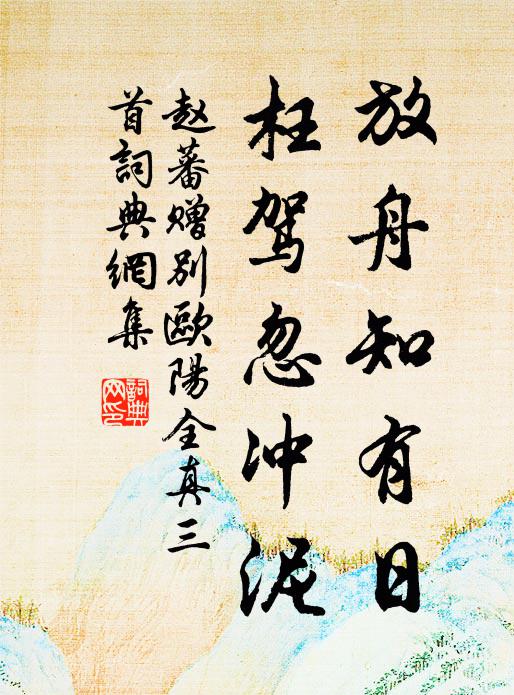 放舟知有日
枉驾忽冲泥
赵蕃赠别歐陽全真三
首詞典網集
詞典
网印